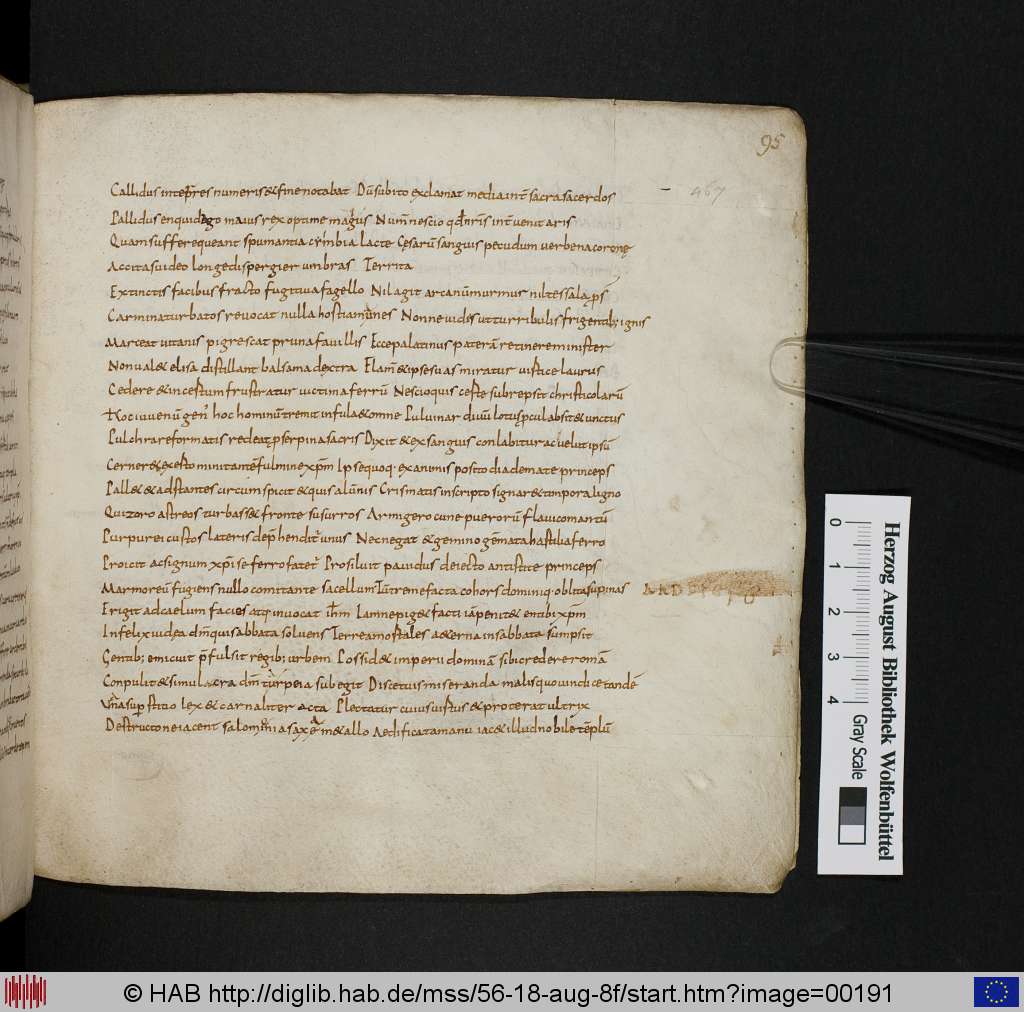 95
467
Callidus interpres numeris & fine notabat Dū subito exclamat media int̄ sacra sacerdos
Pallidus en quid ago maius rex optime magbus Numn̄ nescio qd n̄ris int̄uenit aris
Quam sufferre queant spumantia cymbia lacte Cęsarū sanguis pecudum uerbena coronę
Accitas uideo longe dispergier umbras Territa
Extinctis facibus fracto fugitiua fagello Nil agit arcanū murmur nil tessala ps̄
Carmina turbatos reuocat nulla hostia manes Nonne uidis ut turribulis frigentib; ignis
Marceat ut canis pigrescat pruna fauillis Ecce palatinus paterā retinere minister
Non ual& elisa distillant balsama dextra Flam̄ & ipse suas miratur uistice laurus
Cedere & incestum frustratur uictima ferrū Nescio quis certe subrepsit christicolarū
Hoc iuuenū gen' hoc hominū tremit infula & omne Puluinar diuū lotus pcul absit & unctus
Pulchra reformatis redeat pserpina sacris Dixit & exsanguis conlabitur ac uelut ipsū
Cerner& exerto minitantē fulmine xp̄m Ipse quoq· exanimis posito diademate princeps
Pall& & adstantes circumspicit & quis alūnis Crismatis inscripto signar& timpora ligno
Qui zoroastreos turbass& fronte susurros Armiger o cune puerorū flauicomantū
Purpurei custos lateris dep̄henditr̄ unus Nec negat & gemino gēmata hastilia ferro
Proicit ac signum xp̄i se ferro fatet̄ Prosiluit pauidus deiecto antistite princeps
Marmoreū fugiens nullo comitante sacellum Dū tremefacta cohors dominiq· oblita supinas
Erigit ad caelum facies atq· inuocat ih̄m Iamne pig& facti iā penit& en tibi xp̄m
Infelix iudea dm̄ qui sabbata soluens Terrea mortales aeterna in sabbata sumpsit
Gentib; emicuit p̄fulsit regib; urbem Possid& imperii dominā sibi credere romā
Conpulit & simulacra dm̄ tarpeia subegit Disce tuis miseranda malis quo uindice tandē
Vana supstitio lex & carnaliter acta Plectatur cuius uirtus te proterat ultrix
Destructone iacent salomonia saxa metallo Aedificata manu iac& illud nobile tēplū
Herzog August Bibliothek Wolfenbüttel
0 1 2 3 4
Gray Scale
© HAB http://diglib.hab.de/mss/56-18-aug-8f/start.htm?image=00191